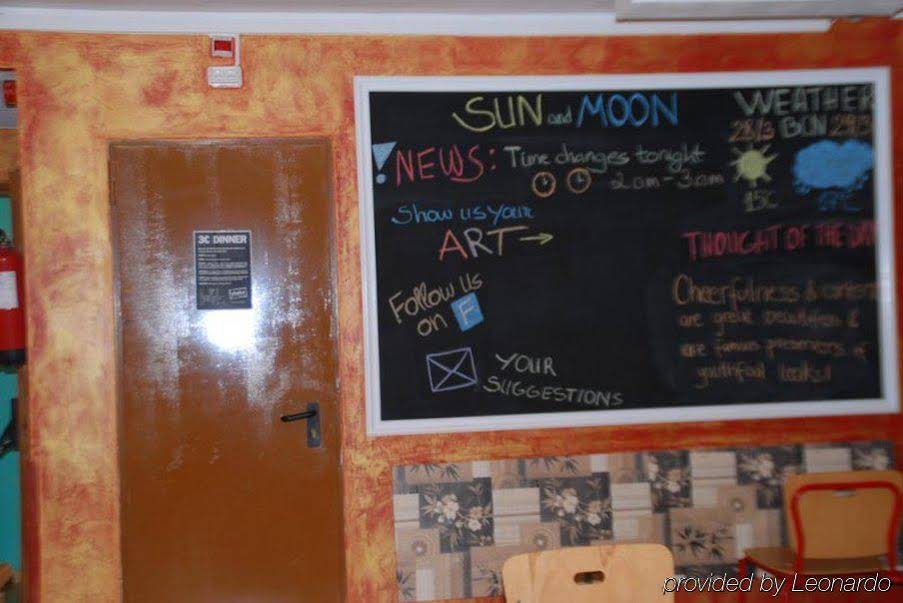 3€ DINNER
SUN and MOON
WEATHER
28/3 BCN 29/3
! NEWS: Time changes tonight
2am - 3am
15C
Show us your
ART →
THOUGHT OF THE DAY
Follow us
on F
Cheerfulness &
are great beautifiers &
are famous preservers of
youthful looks!
YOUR
SUGGESTIONS
provided by Leonardo